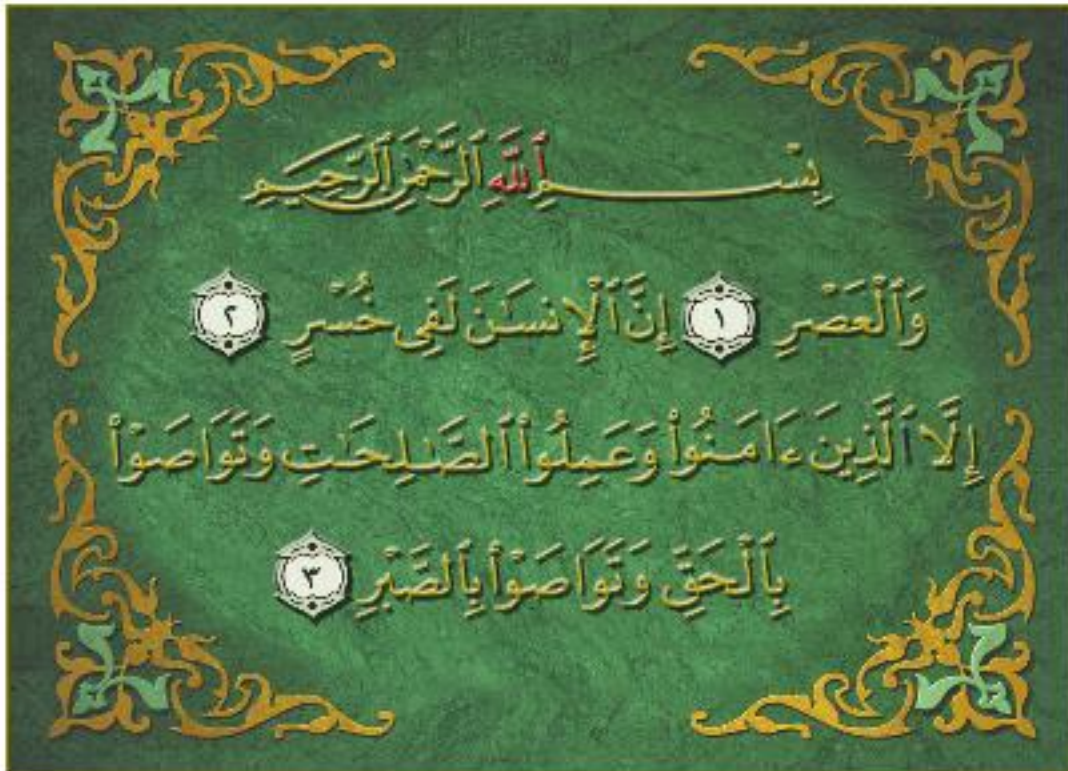 بِسْمِ ٱللَّهِ ٱلرَّحْمَٰنِ ٱلرَّحِيمِ
وَٱلْعَصْرِ ١ إِنَّ ٱلْإِنسَٰنَ لَفِى خُسْرٍ ٢
إِلَّا ٱلَّذِينَ ءَامَنُوا۟ وَعَمِلُوا۟ ٱلصَّٰلِحَٰتِ وَتَوَاصَوْا۟
بِٱلْحَقِّ وَتَوَاصَوْا۟ بِٱلصَّبْرِ ٣